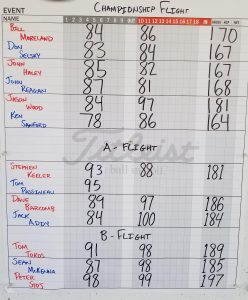 EVENT CHAMPIONSHIP FLIGHT
NAME 1 2 3 4 5 6 7 8 9 OUT 10 11 12 13 14 15 16 17 18 IN HCP NET
BILL MORELAND 84 86 170
DON SELSKY 83 84 167
JOHN HALEY 85 82 167
JOHN REAGAN 87 81 168
JASON WOOD 84 97 181
KEN SANFORD 78 86 164
Titleist
A - FLIGHT
STEPHEN KEELER 93 88 181
TOM 95
DAVE BARCOMB 89 97 186
JACK ADDY 84 100 184
B - FLIGHT
TOM 91 98 189
SEAN MCKENNA 87 98 185
PETER 98 99 197